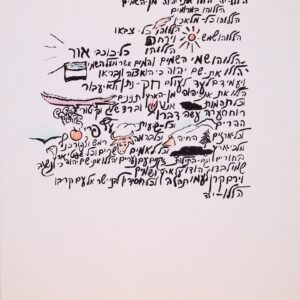 הללו את יהוה מן-השמים
הללוהו במרומים
הללוהו כל-מלאכיו
הללוהו כל-צבאו
הללוהו שמש וירח
הללוהו כל-כוכב אור
הללוהו שמי השמים והמים אשר מעל השמים
יהללו את-שם יהוה כי הוא צוה ונבראו
ויעמידם לעד לעולם חק-נתן ולא יעבור
הללו את-יהוה מן הארץ תנינים
וכל תהמות אש
רוח סערה עשה דברו
ההרים וכל גבעות עץ פרי
וכל-ארזים החיה רמש וצפור כנף
מלכי-ארץ וכל-לאמים שרים וכל
בחורים וגם-בתולות זקנים עם נערים יהללו את-שם יהוה כי נשגב
שמו לבדו הודו על ארץ ושמים
וירם קרן לעמו תהלה לכל חסידיו לבני ישראל עם קרבו
הללו-יה